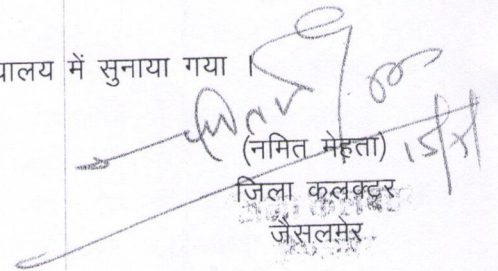 पालय में सुनाया गया ।
(नमित मेहता)
जिला कलक्टर
जैसलमेर